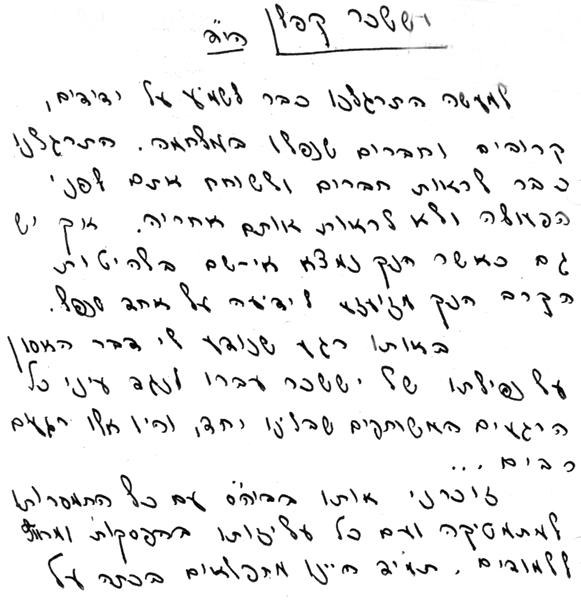 יששכר קפלן הי"ד
למעשה התרגלנו כבר לשמע על ידידים,
קרובים וחברים שנפלו במלחמה. התרגלנו
כבר לראות חברים ולשוחח אתם לפני
הפעולה ולא לראות אותם אחריה. אך יש
גם כאשר הנך נמצא אי-שם בלהיטות
הקרב הנך מזדעזע לידיעה על אחד שנפל.
באותו רגע שנודע לי דבר האסון
על נפילתו של יששכר עברו לנגד עיני כל
הרגעים המשותפים שבלינו יחד, והיו אלו רגעים
רבים ...
זוכרני אותו בביה"ס עם כל התמסרותו
למתמטיקה ועם כל עליזותו בהפסקות ומחוץ
ללמודים. תמיד היינו מתפלאים בכתה על